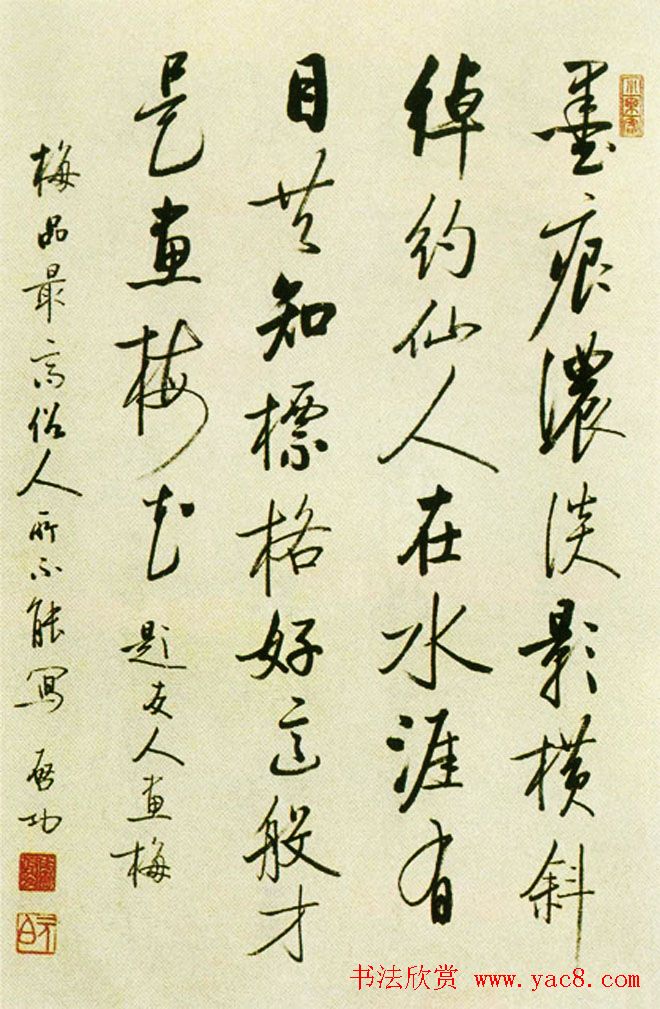 墨痕濃淡影橫斜
綽約仙人在水涯有
目共知標格好這般才
是畫梅花 題友人畫梅
梅品最高俗人所不能寫 啓功
书法欣赏 www.yac8.com